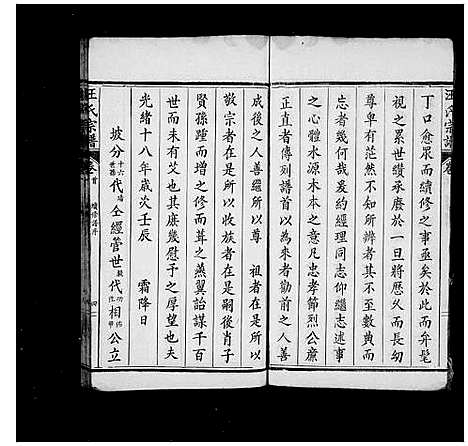 王氏宗譜
丁口愈眾而續修之事亟矣於此而弁髦
視之累世纘承廢於一旦將歷久而長幼
尊卑有茫然不知所辨者其不至數黃而
忘者幾何哉爰約經理同志仰繼志述事
之心體水源木本之意凡忠孝節烈公廉
正直者傳列譜首以為來者勸前之人善
成後之人善繼所以尊　祖者在是所以
敬宗者在是所以收族者在是嗣後肖子
賢孫踵而增之修而葺之燕翼詒謀千百
世而未有艾也其庶幾慰予之厚望也夫
光緒十八年歲次壬辰　霜降日
坡分十六世孫代　仝經管世　代　相　公立
王氏宗譜　卷首　續修譜序　四